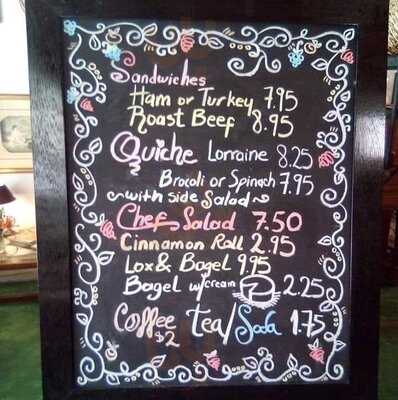 Sandwiches
Ham or Turkey 7.95
Roast Beef 8.95
Quiche Lorraine 8.25
Brocoli or Spinach 7.95
~with side Salad~
Chef Salad 7.50
Cinnamon Roll 2.95
Lox & Bagel 9.95
Bagel w/cream 2.25
Coffee Tea/Soda 1.75
$2